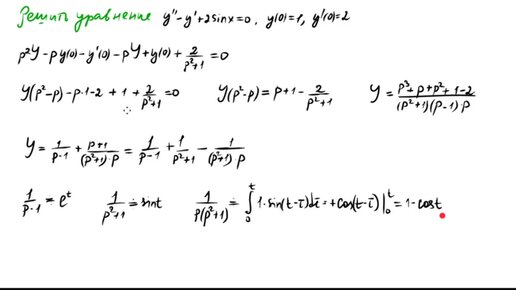 Решить уравнение y''-y'+2sinx=0, y(0)=1, y'(0)=2
p²Y-py(0)-y'(0)-pY+y(0)+2/(p²+1)=0
Y(p²-p)-p·1-2+1+2/(p²+1)=0 Y(p²-p)=p+1-2/(p²+1) Y=(p³+p+p²+1-2)/((p²+1)(p-1)p)
Y=1/(p-1)+(p+1)/((p²+1)·p)=1/(p-1)+1/(p²+1)-1/((p²+1)·p)
1/(p-1)=e^t 1/(p²+1)=sint 1/(p(p²+1))=∫₀ᵗ1·sin(t-τ)dτ=+cos(t-τ)|₀ᵗ=1-cost